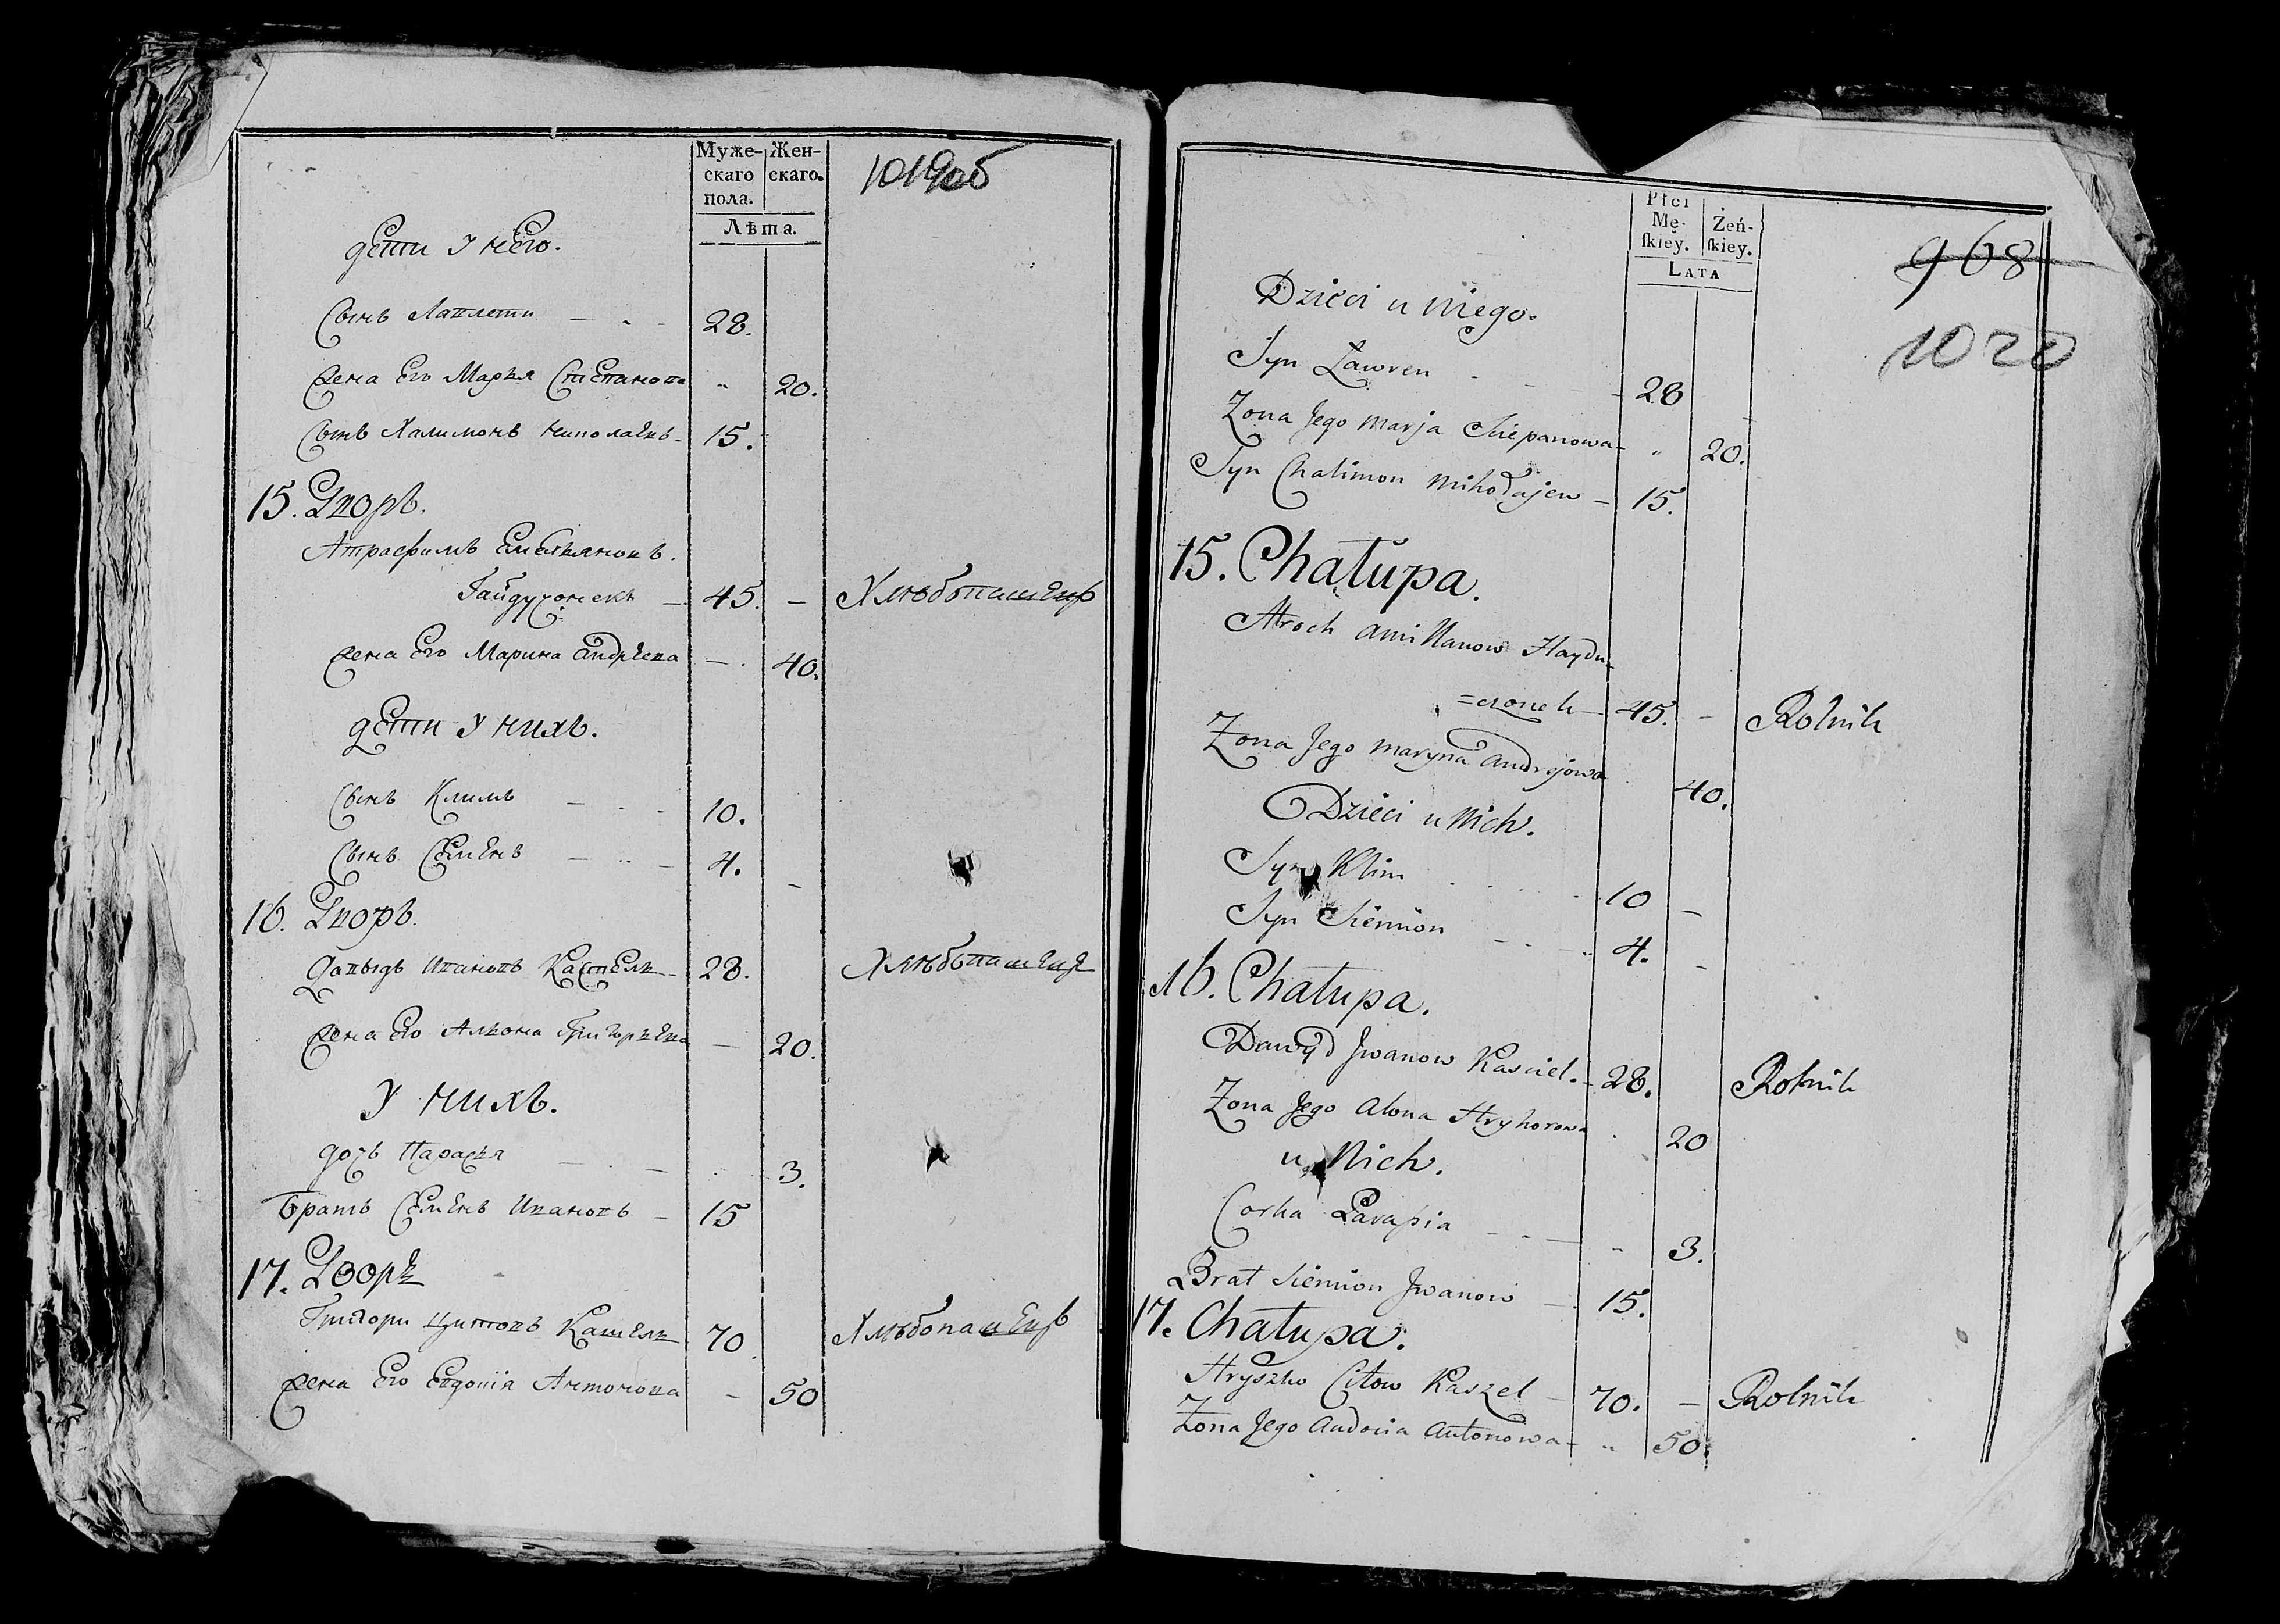 Муже-
скаго
пола.
Жен-
скаго.
Лѣта.
1019об
дети у него.
Сынъ 28.
жена Его Марья Степанова " 20.
Сынъ Халимонъ 15.
15. Дворъ.
Емельяновъ.
Гайдученекъ 45. - Хлѣбопашецъ
жена Его Марина Андреева - 40.
дети у нихъ.
Сынъ Климъ 10.
Сынъ Семенъ 4. -
16. Дворъ.
Давыдъ Ивановъ Кастель 28. Хлѣбопашецъ
жена Его Алиона Григорьева - 20.
у нихъ.
дочь Парасья 3.
братъ Семенъ Ивановъ - 15
17. Дворъ
Григори Цитовъ Кашель 70 Хлѣбопашецъ
жена Его Евдокія Антонова - 50
Płci
Mę-
skiey.
Żeń-
skiey.
LATA
968
1020
Dzieci u Niego.
Syn Ławren 28
Zona Jego Marja Sciepanowa - " 20.
Syn Chalimon Mikołajew - 15.
15. Chałupa.
Atroch Amillanow Haydu-
=czonek - 45. - Rolnik
Zona Jego Maryna Andrejowa 40.
Dzieci u Nich.
Syn Klim 10 -
Syn Siemion 4. -
16. Chałupa.
Dawyd Jwanow Kasciel. - 28. Rolnik
Zona Jego Alona Hryhorowa 20
u Nich.
Corka Parasia " 3.
Brat Siemion Jwanow - 15.
17. Chałupa.
Hryszko Citow Kaszel - 70. - Rolnik
Zona Jego Audocia Antonowa - " 50.